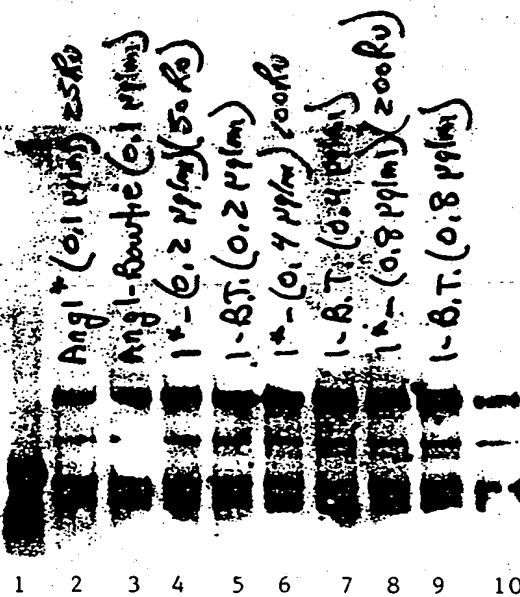 Ang1* (0.1 µg/ml) 25RU
Ang1-Bowtie (0.1 µg/ml)
1*-(0.2 µg/ml)(50RU)
1-B.T. (0.2 µg/ml)
1*-(0.4 µg/ml) 200RU
1-B.T. (0.4 µg/ml)
1*-(0.8 µg/ml)(200RU)
1-B.T. (0.8 µg/ml)
1 2 3 4 5 6 7 8 9 10